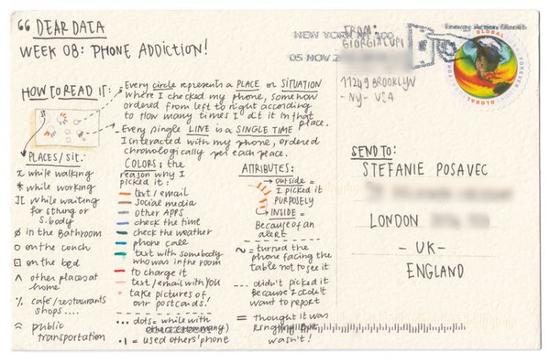 “ DEAR DATA
WEEK 08: PHONE ADDICTION!
HOW TO READ IT:
Every circle represents a PLACE or SITUATION
where I checked my phone, somehow
ordered from left to right according
to how many times I did it in that
place.
Every single LINE is a SINGLE TIME
I interacted with my phone, ordered
chronologically per each place.
PLACES/SIT:
while walking
* while working
while waiting
for sthing or
s.body
ø in the bathroom
o on the couch
on the bed
^ other places at
home
% cafe/restaurants
shops....
≈ public
transportation
COLORS: the
reason why I
picked it:
text/email
social media
other APPS
check the time
check the weather
phone call
text with somebody
who was in the room
to charge it
text/email with YOU
take pictures of
our postcards!
... dots = while with
.| = used others' phone
ATTRIBUTES:
outside =
I picked it
PURPOSELY
INSIDE =
Because of an
alert
~ = turned the
phone facing the
table not to see it
.... didn't picked it
Because I didn't
want to report
= thought it was
ringing but
wasn't!
NEW YORK NY 100
05 NOV
FROM:
GIORGIA LUPI
11249 BROOKLYN
- NY - USA
GLOBAL
FOREVER
SEND TO:
STEFANIE POSAVEC
LONDON
- UK -
ENGLAND